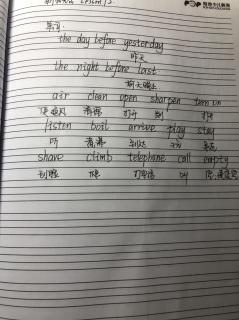 单词:
the day before yesterday
昨天
the night before last
前天晚上
air clean open sharpen turn on
使通风 清洁 打开 削 打开
listen boil arrive play stay
听 煮沸 到达 玩
shave climb telephone call empty
刮脸 爬 打电话 叫